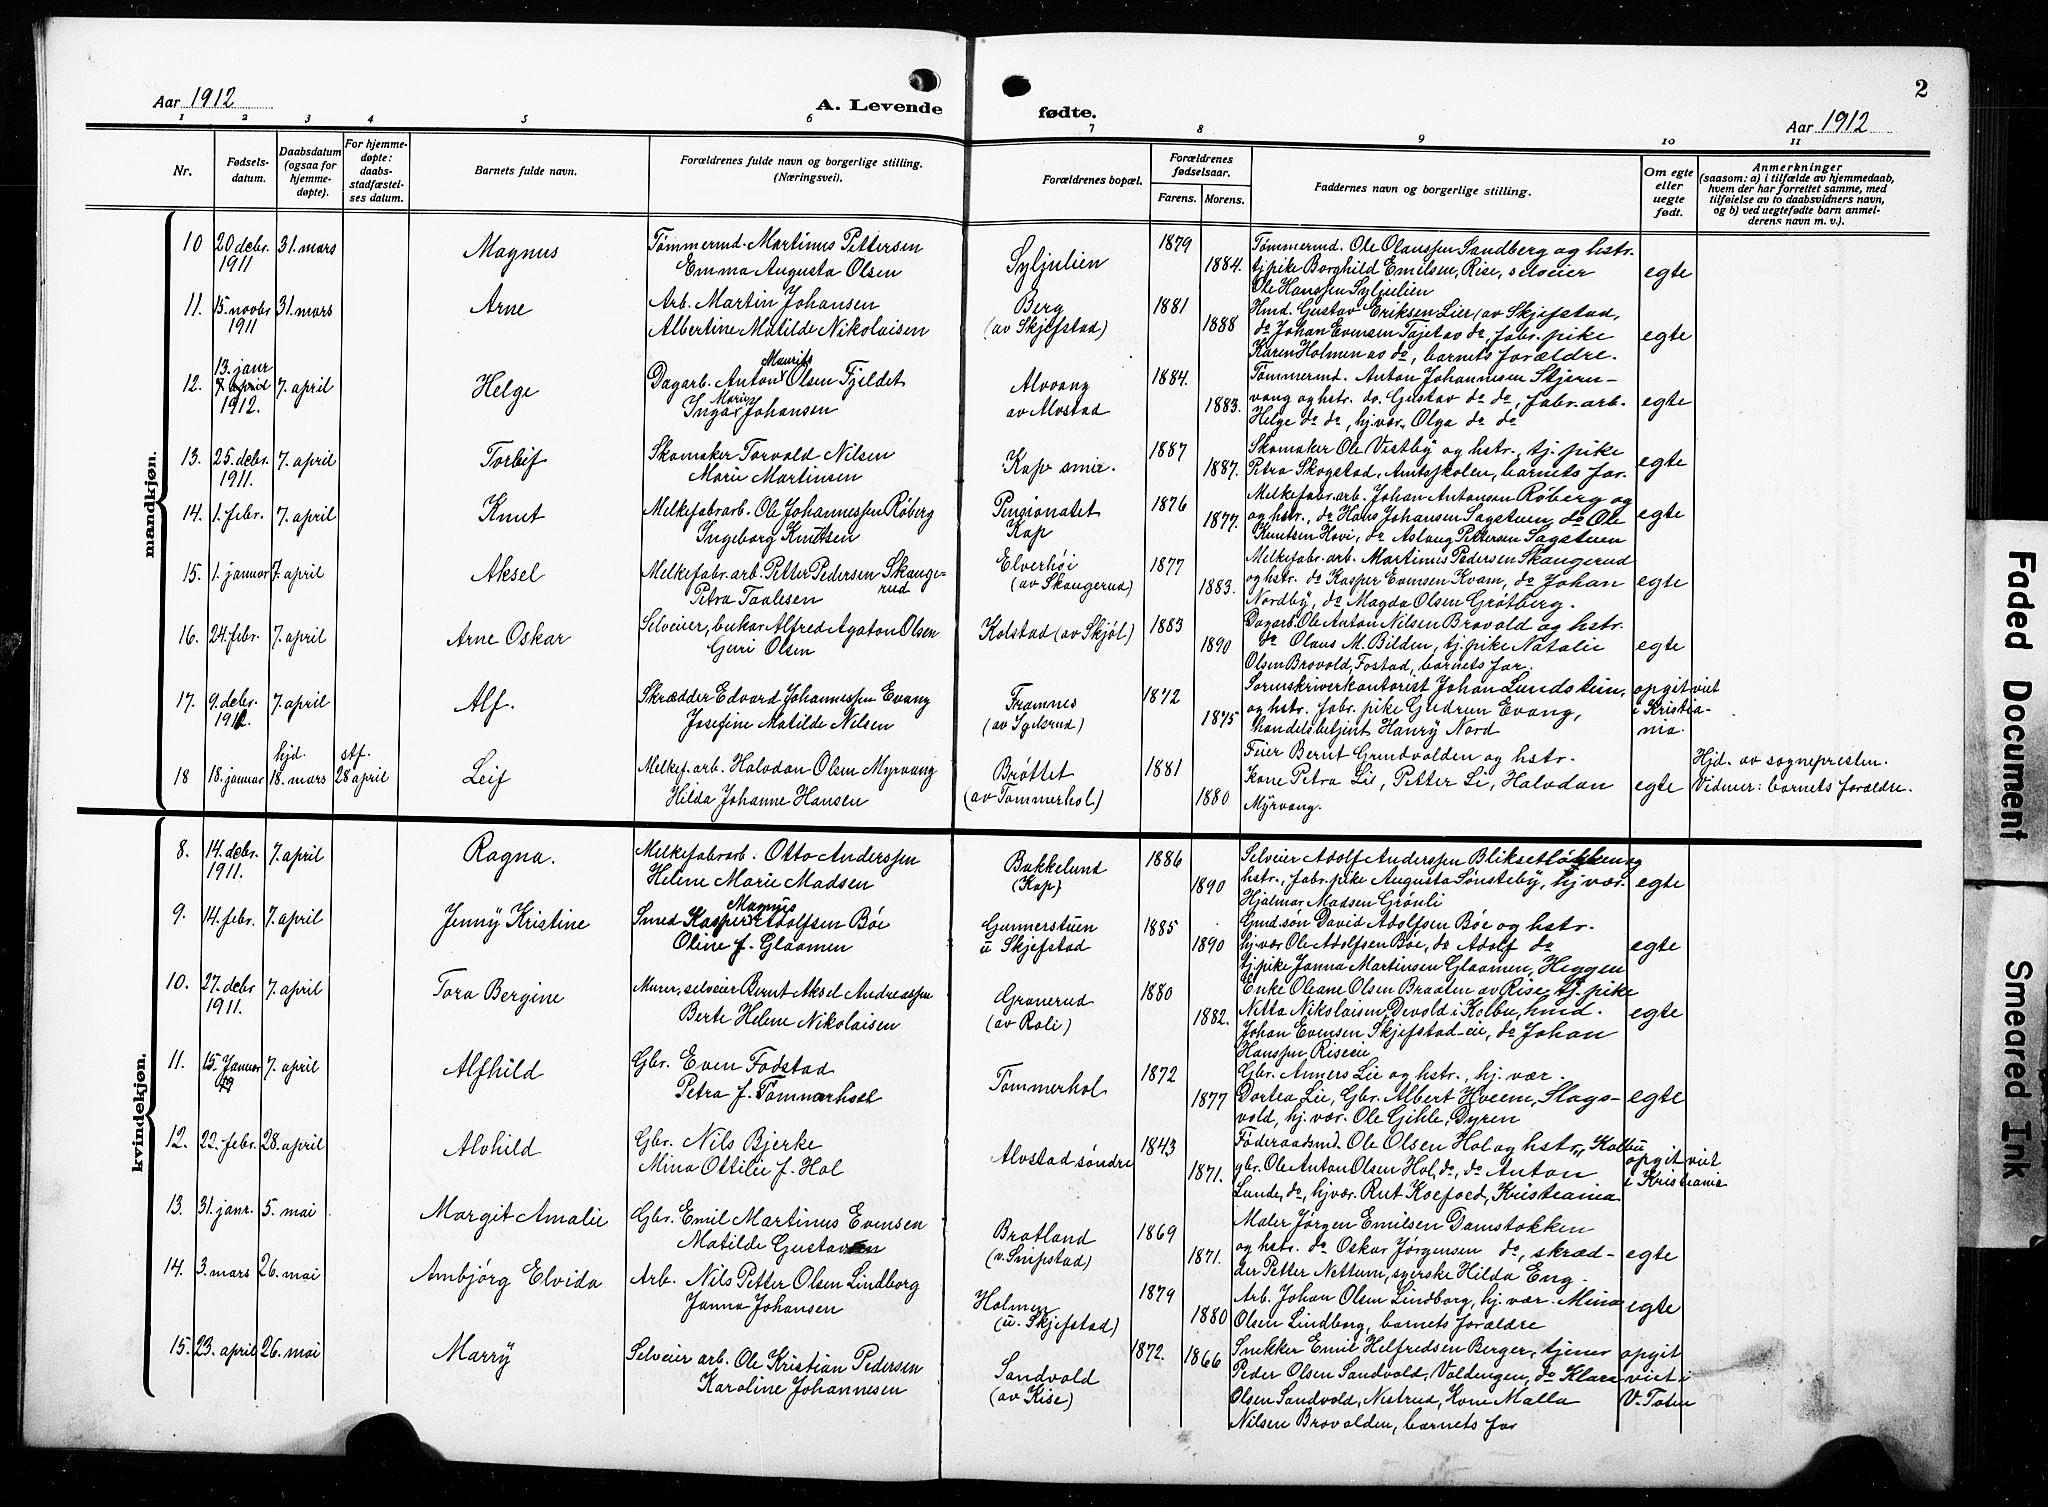 Aar 1912
A. Levende
fødte.
Aar 1912
2
1 2 3 4 5 6 7 8 9 10 11
Nr.
Fødsels-
datum.
Daabsdatum
(ogsaa for
hjemme-
døpte).
For hjemme-
døpte:
daabs-
stadfæstel-
ses datum.
Barnets fulde navn.
Forældrenes fulde navn og borgerlige stilling.
(Næringsvei).
Forældrenes bopæl.
Forældrenes
fødselsaar.
Farens. Morens.
Faddernes navn og borgerlige stilling.
Om egte
eller
uegte
født.
Anmerkninger
(saasom: a) i tilfælde av hjemmedaab,
hvem der har forrettet samme, med
tilføielse av to daabsvidners navn,
og b) ved uegtefødte barn anmel-
derens navn m. v.).
mandkjøn.
10 20 debr. 1911 31. mars
Magnus
Tømmermd. Martinus Pettersen
Emma Augusta Olsen
Syljulien
1879
1884.
Tømmermd. Ole Olaussen Sandberg og hstr.
tj.pike Borghild Emilsen, Rise, selveier
Ole Hanssen Syljulien
egte
11. 15. novbr 1911 31. mars
Arne
Arb. Martin Johansen
Albertine Matilde Nikolaisen
Berg
(av Skjefstad)
1881
1888
Hmd. Gustav Eriksen Lier (av Skjefstad,
do Johan Evensen Tajet av do, fabr. pike
Karen Holmen av do, barnets forældre.
egte
12. 13. janr 7. april 1912. 7. april
Helge
Dagarb. Anton Maurits Olsen Fjeldet
Inga Marie Johansen
Alvvang
av Alvstad
1884.
1883.
Tømmermd. Anton Johannesen Stjern-
vang og hstr. do. Gustav do do, fabr. arb.
Helge do do, hj.vær. Olga do do
egte
13. 25. debr. 1911. 7. april
Torleif
Skomaker Torvald Nilsen
Marie Martinsen
Kap smie.
1887
1887.
Skomaker Ole Vistby og hstr., tj. pike
Petra Skogstad, Amtsskolen, barnets far.
egte
14. 1. febr. 7. april
Knut
Melkefabrarb. Ole Johannessen Røberg
Ingeborg Knutsen
Pensionatet
Kap
1876
1877.
Melkefabr.arb. Johan Antonsen Røberg og
og hstr., do Hans Johansen Sagstuen, do Ole
Knutsen Hovi, do Aslaug Pettersen Sagstuen
egte
15. 1. januar 7. april
Aksel
Melkefabr. arb. Petter Pedersen Skange-
rud
Petra Taalesen
Elverhøi
(av Skangerud)
1877
1883.
Melkefabr. arb. Martinus Pedersen Skangerud
og hstr. do Kasper Evensen Kvam, do Johan
Nordby, do Magda Olsen Grøtberg.
egte
16. 24. febr. 7. april
Arne Oskar
Selveier, Alfred Agaton Olsen
Guri Olsen
Kolstad (av Skjøl)
1883
1890
Dagarb. Ole Anton Nilsen Brovold og hstr.
do Olaus M. Bilden, tj. pike Natalie
Olsen Brovold, Fostad, barnets far.
egte
17. 9. debr. 1912 7. april
Alf.
Skrædder Edvard Johannessen Evang
Josefine Matilde Nilsen
Framnes
(av Sylterud)
1872
1875
Sorenskriverkontorist Johan Lundstuen,
og hstr. fabr. pike Gudrun Evang,
handelsbetjent Hanry Nord
opgit viet
i Kristia-
nia.
18 18. januar hjd. 18. mars stf. 28 april
Leif
Melkef. arb. Halvdan Olsen Myrvang
Hilda Johanne Hansen
Brøttet
(av Tømmerhol)
1881
1880
Feier Bernt Grundvolden og hstr.
Kone Petra Lie, Petter Li, Halvdan
Myrvang.
egte
Hjd. av sognepresten.
Vidner: barnets forældre.
kvindekjøn.
8. 14. debr. 1911. 7. april
Ragna.
Melkefabrarb. Otto Anderssen
Helene Marie Madsen
Bakkelund
(Kap)
1886
1890
Selveier Adolf Anderssen Blikset og
hstr., fabr. pike Augusta Sønsteby, hj.vær.
Hjalmar Madsen Grønli
egte
9. 14. febr. 7. april
Jenny Kristine
Smed Kasper Magnus Adolfsen Bøe
Oline f. Glaamen
Gunnerstuen
u Skjefstad
1885
1890
Gmd.søn David Adolfsen Bøe og hstr.
hj.vær Ole Adolfsen Bøe, do Adolf do
tj.pike Janna Martinsen Glaamen, Heggen
egte
10. 27. debr 1911. 7. april
Tora Bergine
Murer, selveier Bernt Aksel Andreassen
Berte Helene Nikolaisen
Granerud
(av Roli)
1880
1882.
Enke Oleane Olsen Braaten av Rise, tj. pike
Netta Nikolaisen, Devold i Kolbu, hmd.
Johan Evensen Skjefstad-eie, do Johan
Hanssen Riseeie
egte
11. 15. Januar 7. april
Alfhild
Gbr. Even Fodstad
Petra f. Tømmerhol
Tømmerhol
1872
1877
Gbr. Anners Lie og hstr., hj. vær.
Dortea Lie, Gbr. Albert Hveem, Slags-
vold, hj. vær. Ole Gihle, Dyren
egte
12. 22. febr. 28. april
Alvhild
Gbr. Nils Bjerke
Mina Ottilie f. Hol
Alvstad søndre
1843
1871.
Føderaadsmd. Ole Olsen Hol og hstr., Kolbu
gbr. Ole Anton Olsen Hol, do, do Anton
Lunde, do, hj.vær. Rut Koefoed, Kristiania
opgit viet
i Kristiania
13. 31. janr. 5. mai
Margit Amalie
Gbr. Emil Martinus Evensen
Matilde Gustavsen
Bratland
(v. Snipstad)
1869
1871.
Maler Jørgen Emilsen Damstokken
og hstr. do Oskar Jørgensen do, skræd-
der Petter Nettum, syerske Hilda Eng.
egte
14. 3. mars 26. mai
Ambjørg Elvida
Arb. Nils Petter Olsen Lindborg
Janna Johansen
Holmen
(u. Skjefstad)
1879
1880
Arb. Johan Olsen Lindborg, hj. vær. Mina
Olsen Lindborg, barnets forældre
egte
15. 23. april 26. mai
Marry
Selveier arb. Ole Kristian Pedersen
Karoline Johannesen
Sandvold
(av Kise)
1872. 1866
Snekker Emil Helfredsen Berger, tjener
Peder Olsen Sandvold, Valdengen, do Klara
Olsen Sandvold, Nestrud, Kone Malla
Nilsen Brovolden, barnets far
opgit
viet i
V. Toten
Faded Document
Smeared Ink